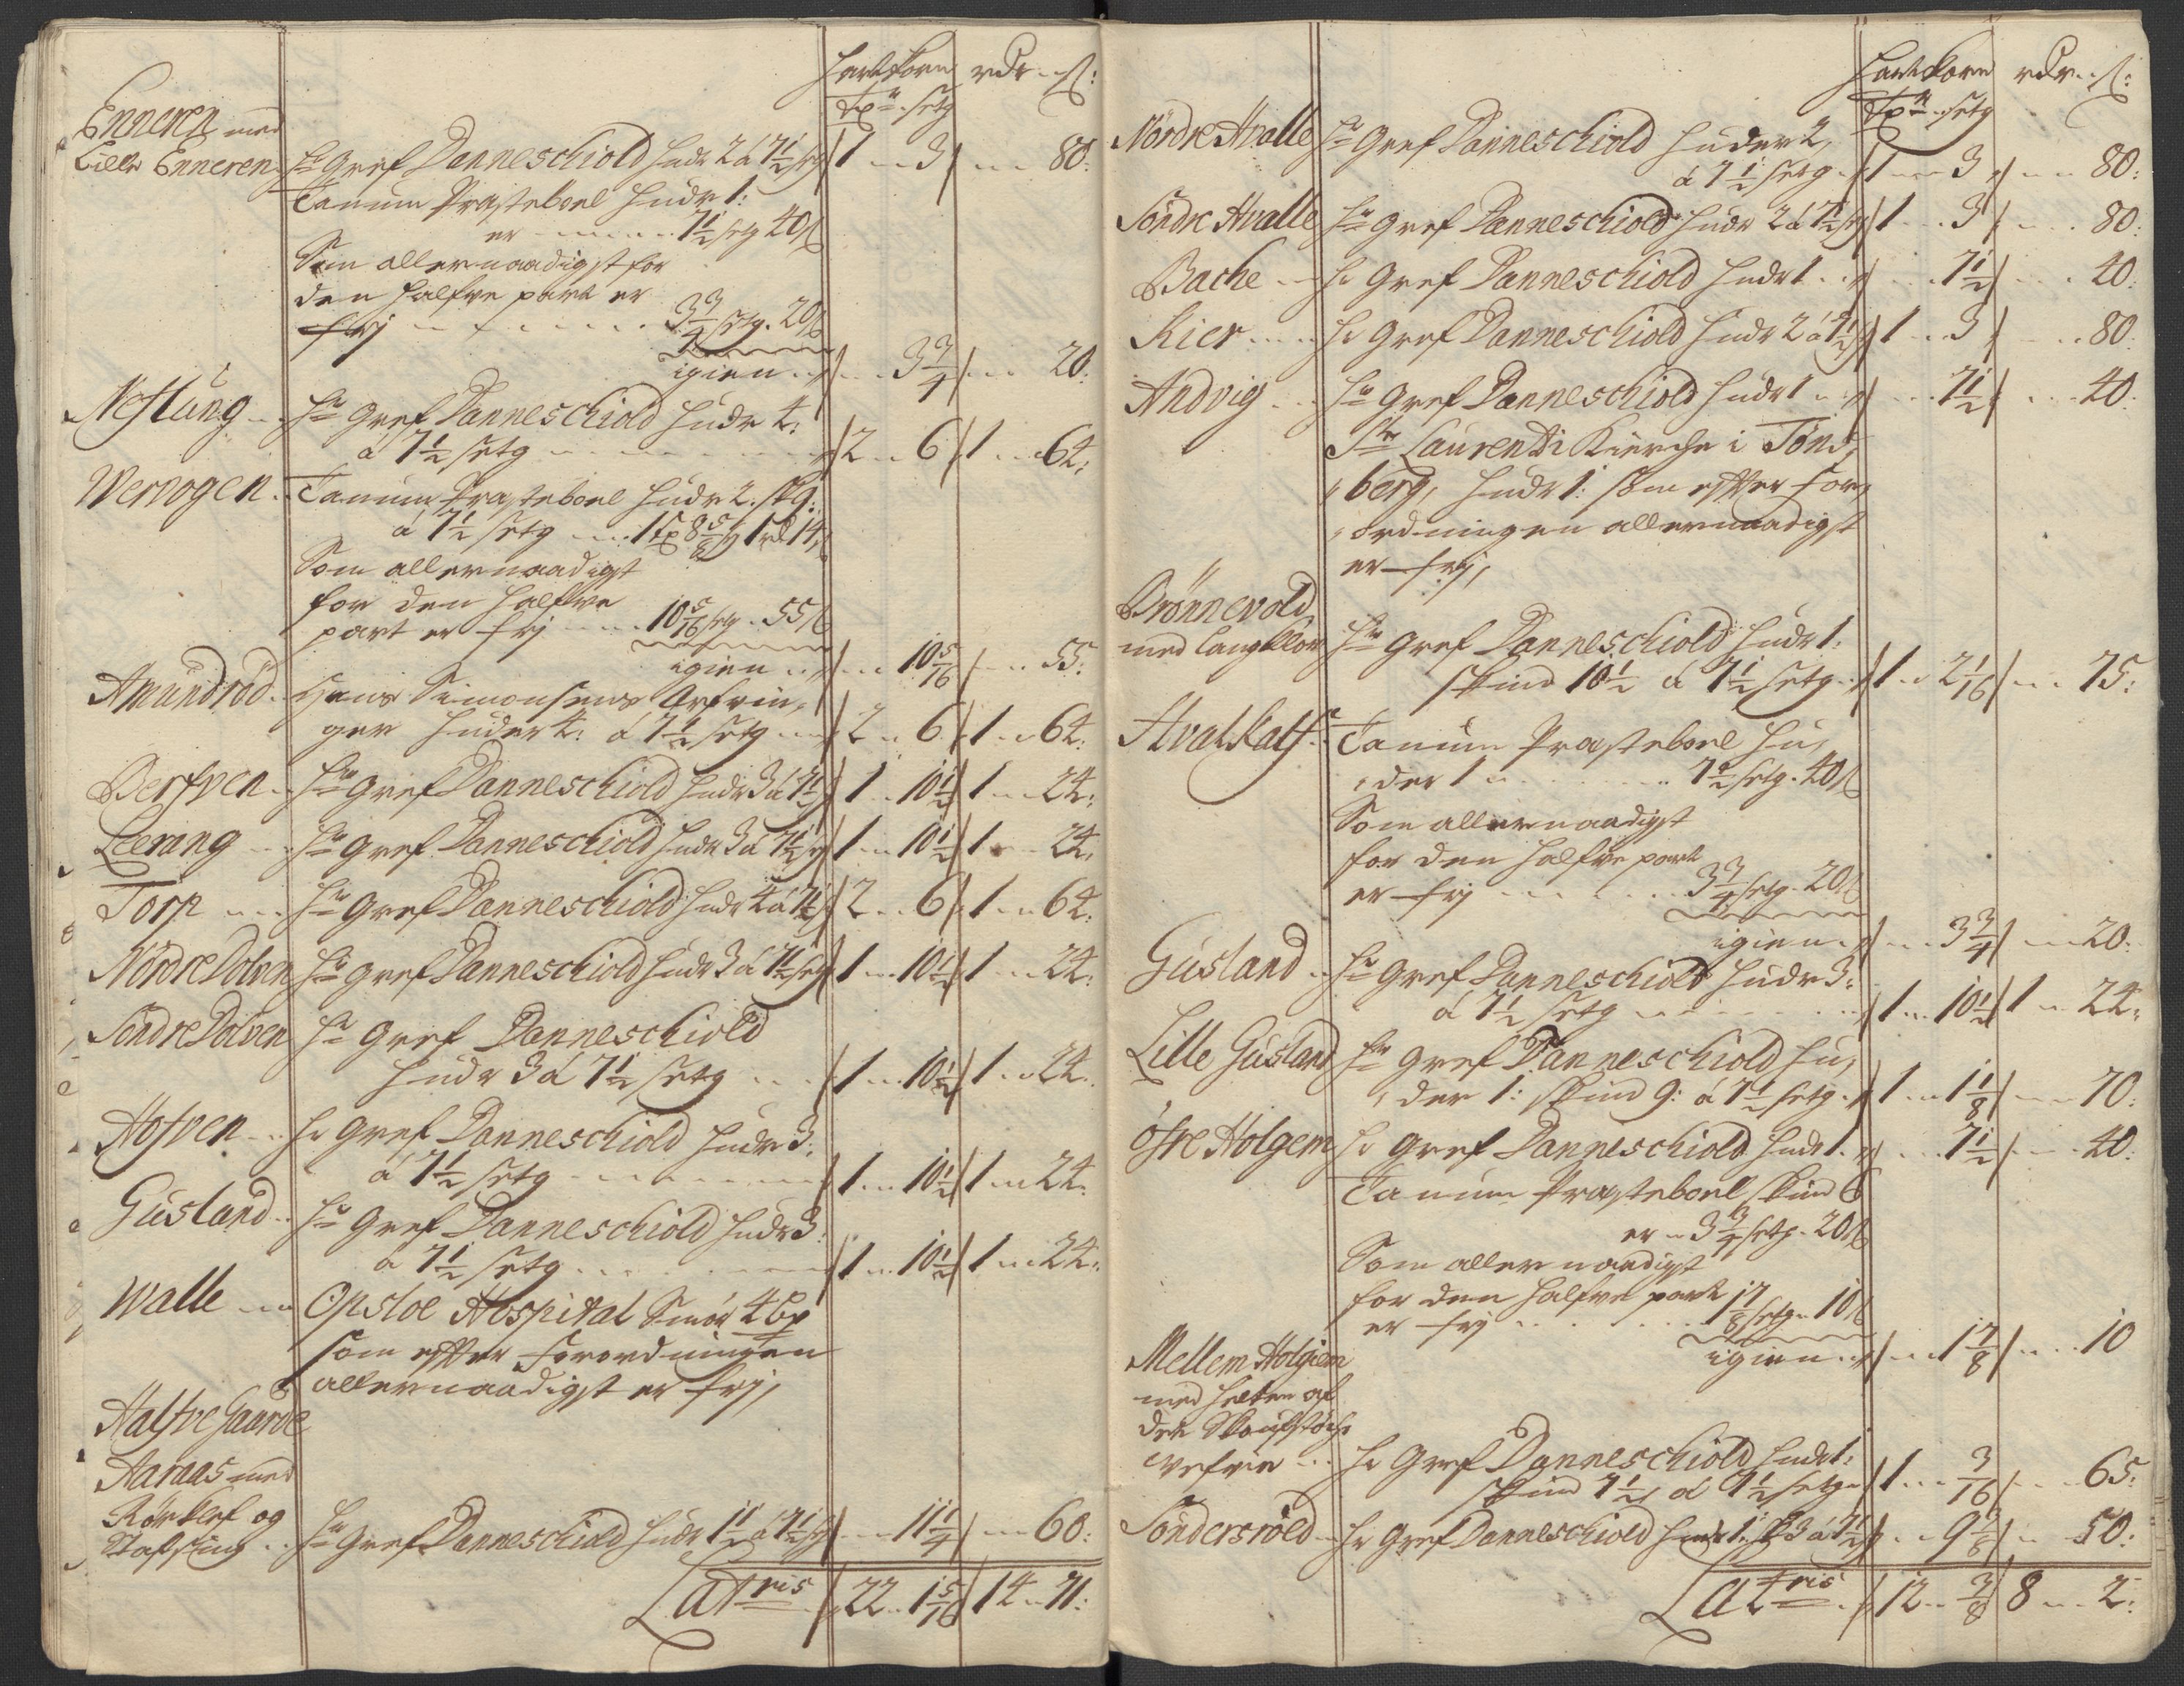 Hartkorn rdr ß:
Tpr setg
Enneren med
Lille Enneren Hr Gref Danneschiold Huder 2 á 7½ stg 1 3 80:
Tanum Præsteboel Huder 1:
er 7½ setg 40 ß
Som allernaadigst for
den halfve part er
frj 3¾ setg. 20 ß
igien 3¾ 20:
Nestung Hr Gref Danneschiold Huder 4:
á 7½ setg 2 6 1 64:
Wervogen Tanum Præsteboel Huder 2.
á 7½ setg 1 tp 8⅝ 1 rd 14
Som allernaadigst
for den halfve
part er frj 10 5/16 setg. 55 ß
igien 10 5/16 55:
Amundröd Hans Simonsens Arfvin,
ger Huder 4: á 7½ setg 2 6 1 64:
Berfven Hr Gref Danneschiold Huder 3 á 7½ 1 10½ 1 24:
Leerang Hr Gref Danneschiold Huder 3 á 7½ 1 10½ 1 24:
Torp Hr Gref Danneschiold Huder 4 á 7½ 2 6 1 64:
Nördre Dolven Hr Gref Danneschiold Huder 3 á 7½ setg 1 10½ 1 24:
Söndre Dolven Hr Gref Danneschiold
Huder 3 á 7½ setg 1 10½ 1 24:
Hofven Hr Gref Danneschiold Huder 3:
á 7½ setg 1 10½ 1 24:
Gusland Hr Gref Danneschiold Huder 3:
á 7½ setg 1 10½ 1 24:
Walle Opsloe Hospital Smör 4 Bp
som efter Forordningen
allernaadigst er frj,
Halfve Gaarde
Aaraas med
Rörklef og
Hr Gref Danneschiold Huder 1½ á 7½ 11¼ 60:
Latris 22 1 5/16 14 71:
Hartkorn rdr ß:
Tpr setg
Nördre Hvalle Hr Gref Danneschiold Huder 2,
á 7½ setg 1 3 80:
Söndre Hvalle Hr Gref Danneschiold Huder 2 á 7½ 1 3 80:
Bache Hr Gref Danneschiold Huder 1 7½ 40:
Kier Hr Gref Danneschiold Huder 2 á 7½ 1 3 80:
Andvig Hr Gref Danneschiold Huder 1 7½ 40:
Laurenti Kierche i Töns,
berg, Huder 1: som efter for,
ordningen allernaadigst
er frj,
Brönnevold
med Hr Gref Danneschiold Huder 1:
Skind 10½ á 7½ setg 1 2 1/16 75:
Hvalkalf Tanum Præsteboel Hu,
der 1 7½ setg. 40 ß
Som allernaadigst
for den halfve part
er frj 3¾ setg. 20 ß
igien 3¾ 20:
Gusland Hr Gref Danneschiold Huder 3:
á 7½ setg 1 10½ 1 24:
Lille Gusland Hr Gref Danneschiold Hu,
der 1: Skind 9: á 7½ setg 1 1⅛ 70:
Öfre Holgem Hr Gref Danneschiold Huder 1. 7½ 40:
Tanum Præsteboel Skind 6
er 3¾ setg. 20 ß
Som allernaadigst
for den halfve part
er frj 1⅞ setg. 10 ß
igien 1⅞ 10
Mellem Holgiem
med helten af
det
Hr Gref Danneschiold Huder 1:
Skind 7½ á 7½ setg 1 3/16 65:
Söndersröed Hr Gref Danneschiold Huder 1: Sk 3 á 7½ 9⅜ 50:
Latris 12 ⅜ 8 2: